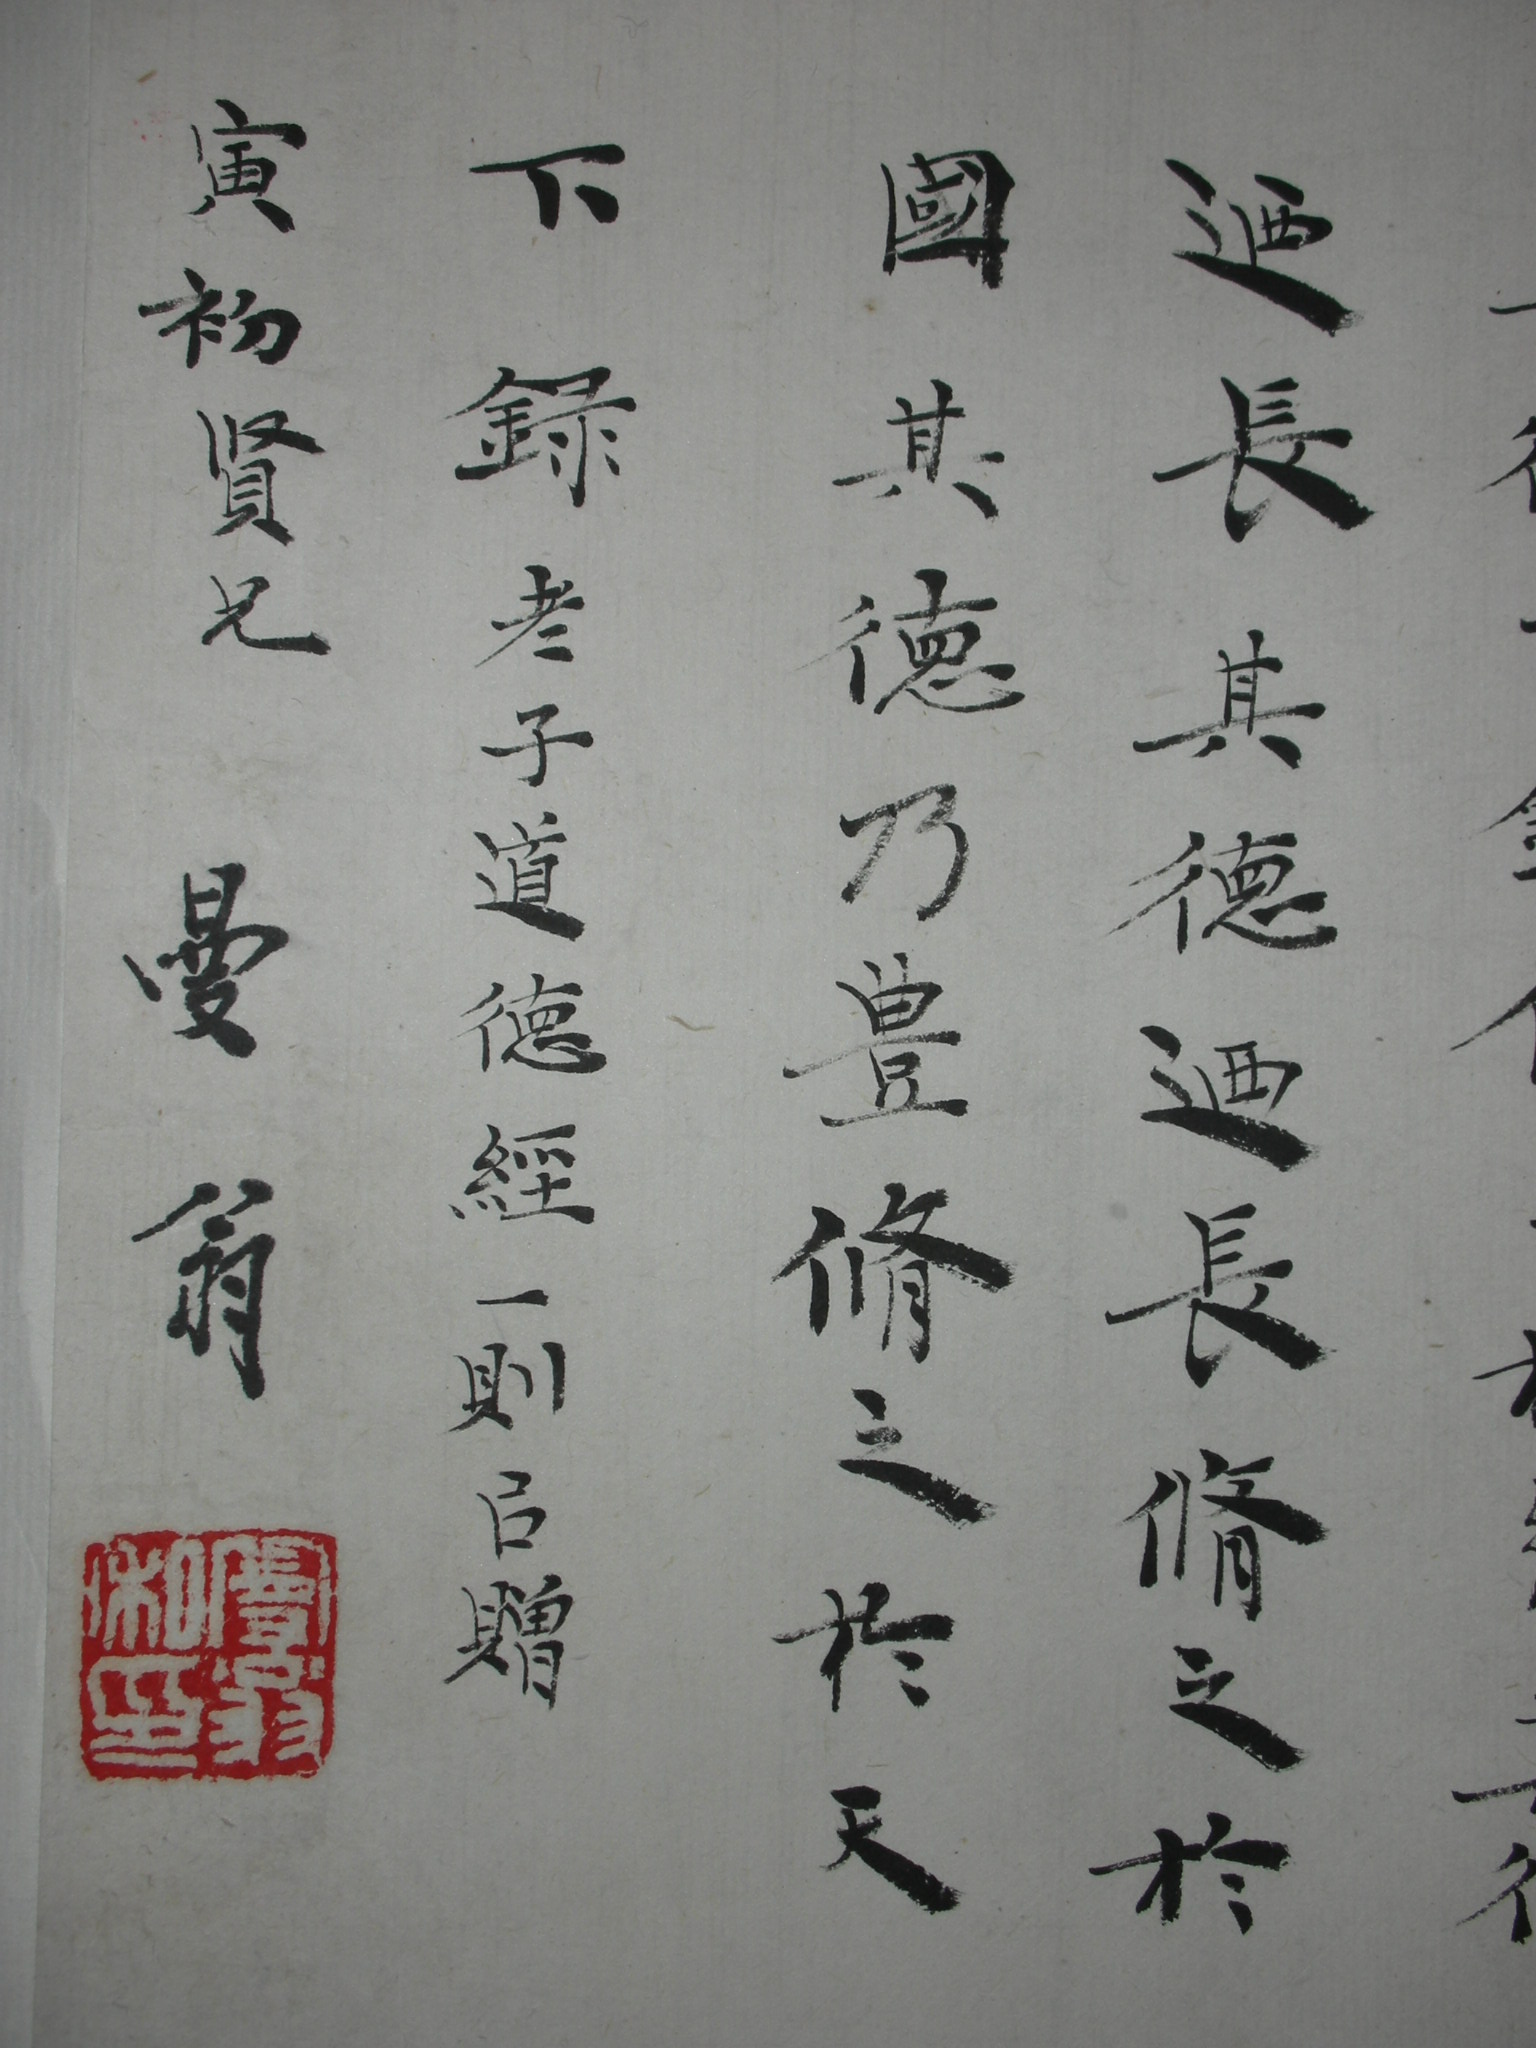 迺長其德迺長脩之於
國其德乃豊脩之於天
下録老子道德經一則㠯贈
寅初賢兄 曼翁
曼翁私印